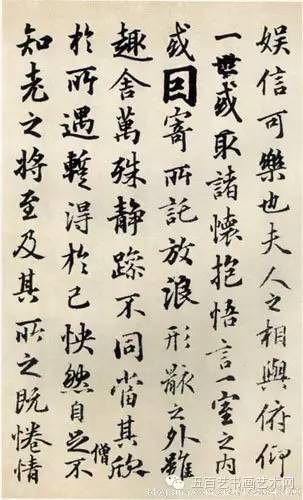 娛信可樂也夫人之相與俯仰
一世或取諸懷抱悟言一室之內
或因寄所託放浪形骸之外雖
趣舍萬殊靜躁不同當其欣
於所遇蹔得於己怏然自足不
僧
知老之將至及其所之既惓情
五百艺书画艺术网